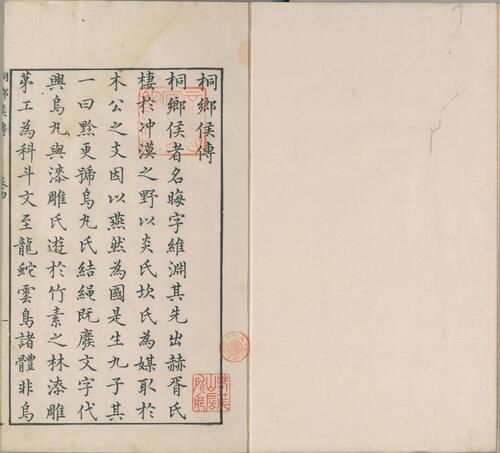 桐鄉侯傳
桐鄉侯者名晦字維淵其先出赫胥氏
棲於冲漠之野以炎氏坎氏為媒取於
木公之支因以燕然為國是生九子其
一曰黔更號烏九氏結繩既廢文字代
興烏九與漆雕氏遊於竹素之林漆雕
苐工為科斗文至龍蛇雲鳥諸體非烏
桐鄉侯傳
一